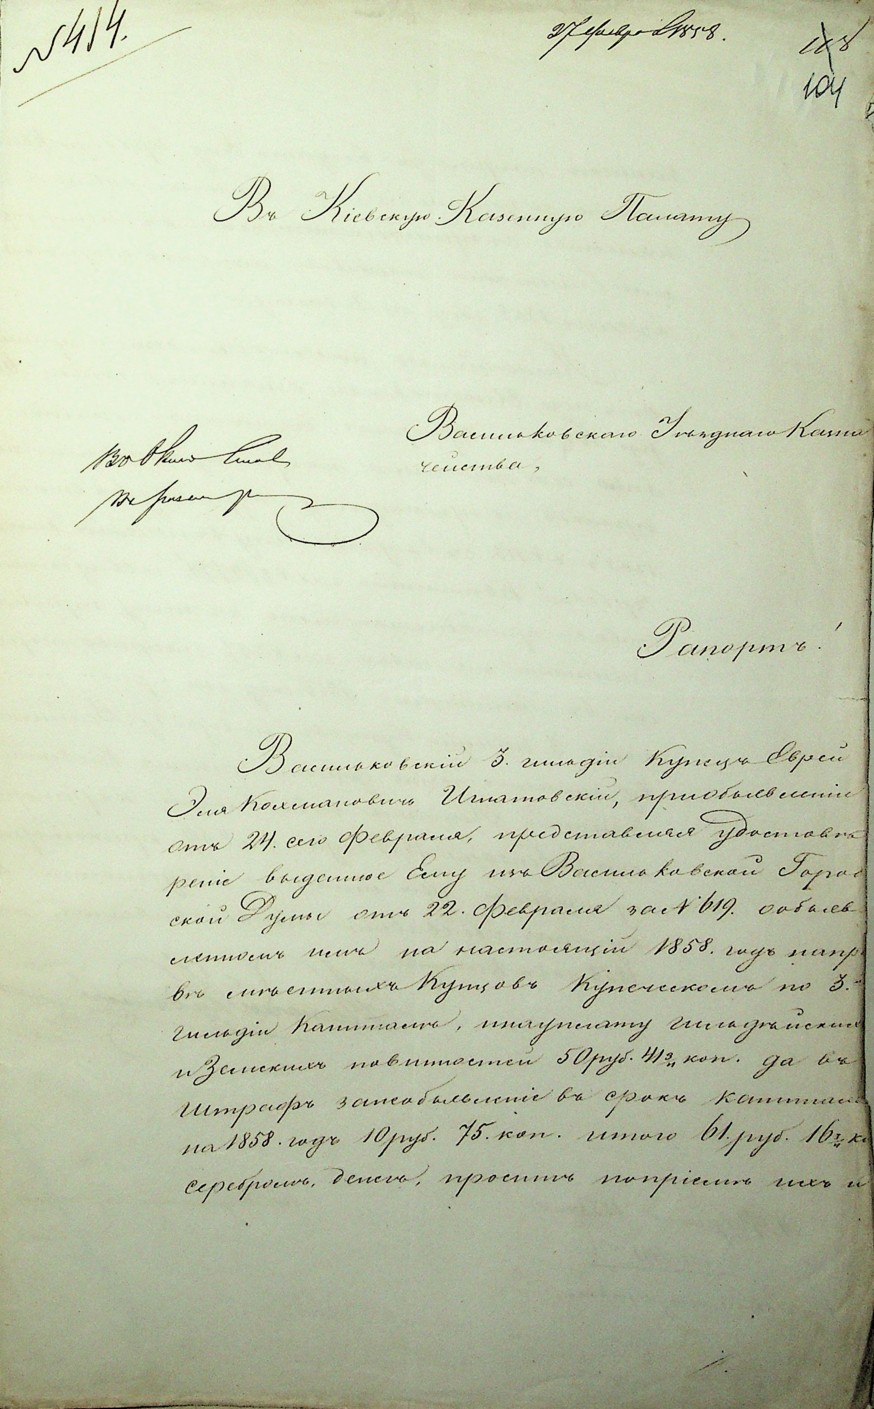 № 414.
27 февр 1858.
118
104
Въ Кіевскую Казенную Палату
Васильковскаго Уѣзднаго Казна
чейства,
Рапортъ!
Васильковскій 3. гильдіи Купецъ Еврей
Эля Колмановичъ Игнатовскій, приобъявленіи
отъ 24. сего Февраля, представляя удостовѣ
реніе выданное Ему изъ Васильковской Город
ской Думы отъ 22. Февраля за № 619. объобъяв
ленномъ имъ на настоящій 1858. годъ
Купцовъ Купеческомъ по 3.
гильдіи Капиталѣ, инауплату гильдѣйскихъ
и Земскихъ повинностей 50 руб. 41 3/4 коп. да въ
штрафъ занеобъявленіе въ срокъ капитала
на 1858. годъ 10 руб. 75. коп. итого 61. руб. 16 3/4 ко
серебромъ, денегъ, проситъ попріемѣ ихъ и